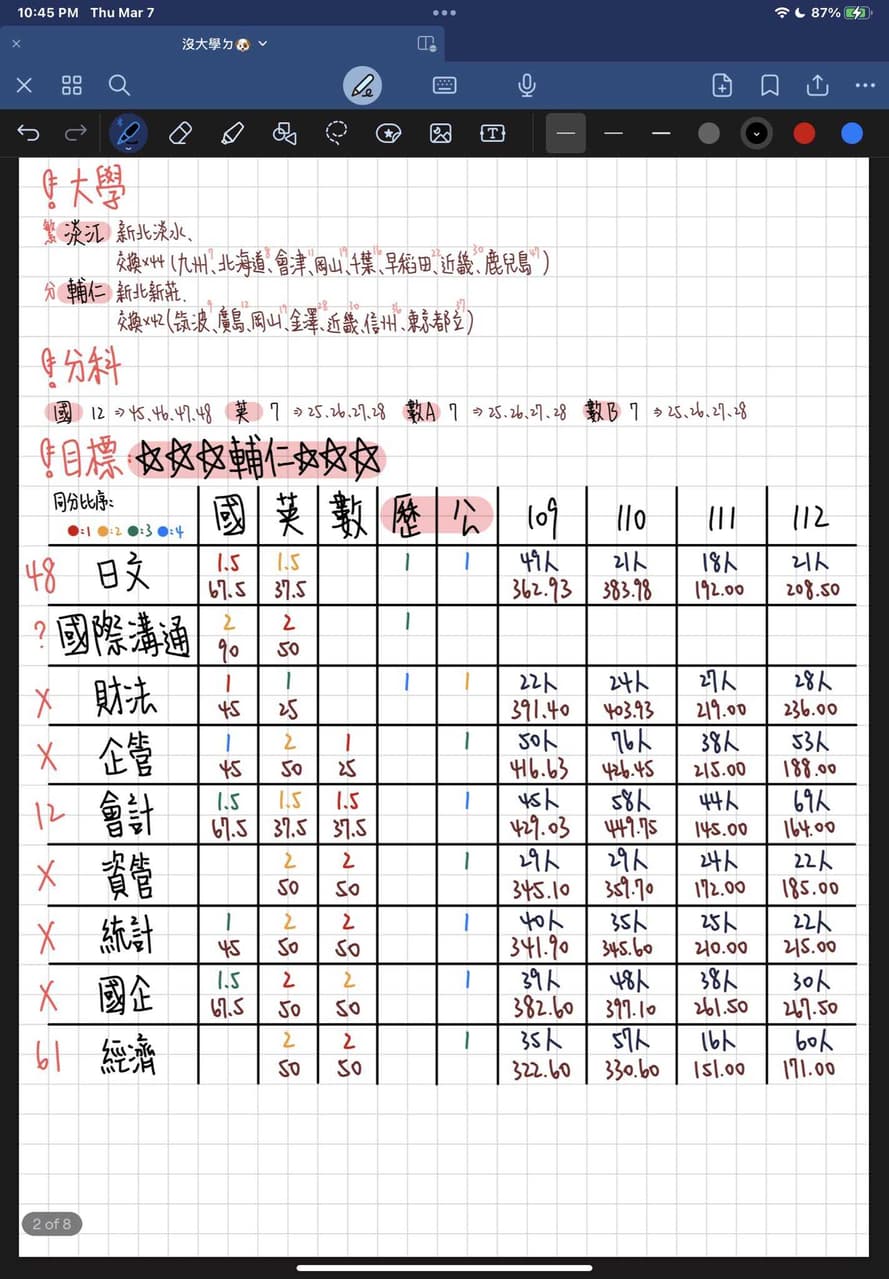 10:45 PM Thu Mar 7
87%
沒大學ㄉ🐶
!大學
繁 淡江 新北淡水、
交換x44(九州7、北海道8、會津11、岡山19、千葉16、早稻田22、近畿30、鹿兒島47)
分 輔仁 新北新莊.
交換x42(筑波9、廣島12、岡山19、金澤28、近畿30、信州36、東京都立37)
!分科
國 12 ⇒45.46.47.48 英 7 ⇒25.26.27.28 數A 7 ⇒25.26.27.28 數B 7 ⇒25.26.27.28
!目標:☆☆☆輔仁☆☆☆
同分比序: 國 英 數 歷 公 109 110 111 112
:1 :2 :3 :4
48 日文 1.5 1.5 1 1 49人 21人 18人 21人
67.5 37.5 362.93 383.98 192.00 208.50
? 國際溝通 2 2 1
90 50
X 財法 1 1 1 1 22人 24人 27人 28人
45 25 391.40 403.93 219.00 236.00
X 企管 1 2 1 1 50人 76人 38人 53人
45 50 25 416.63 426.45 215.00 188.00
12 會計 1.5 1.5 1.5 1 45人 58人 44人 69人
67.5 37.5 37.5 429.03 449.75 145.00 164.00
X 資管 2 2 1 29人 29人 24人 22人
50 50 345.10 359.70 172.00 185.00
X 統計 1 2 2 1 40人 35人 25人 22人
45 50 50 341.90 345.60 210.00 215.00
X 國企 1.5 2 2 1 39人 48人 38人 30人
67.5 50 50 382.60 397.10 261.50 267.50
61 經濟 2 2 1 35人 57人 16人 60人
50 50 322.60 330.60 151.00 171.00
2 of 8